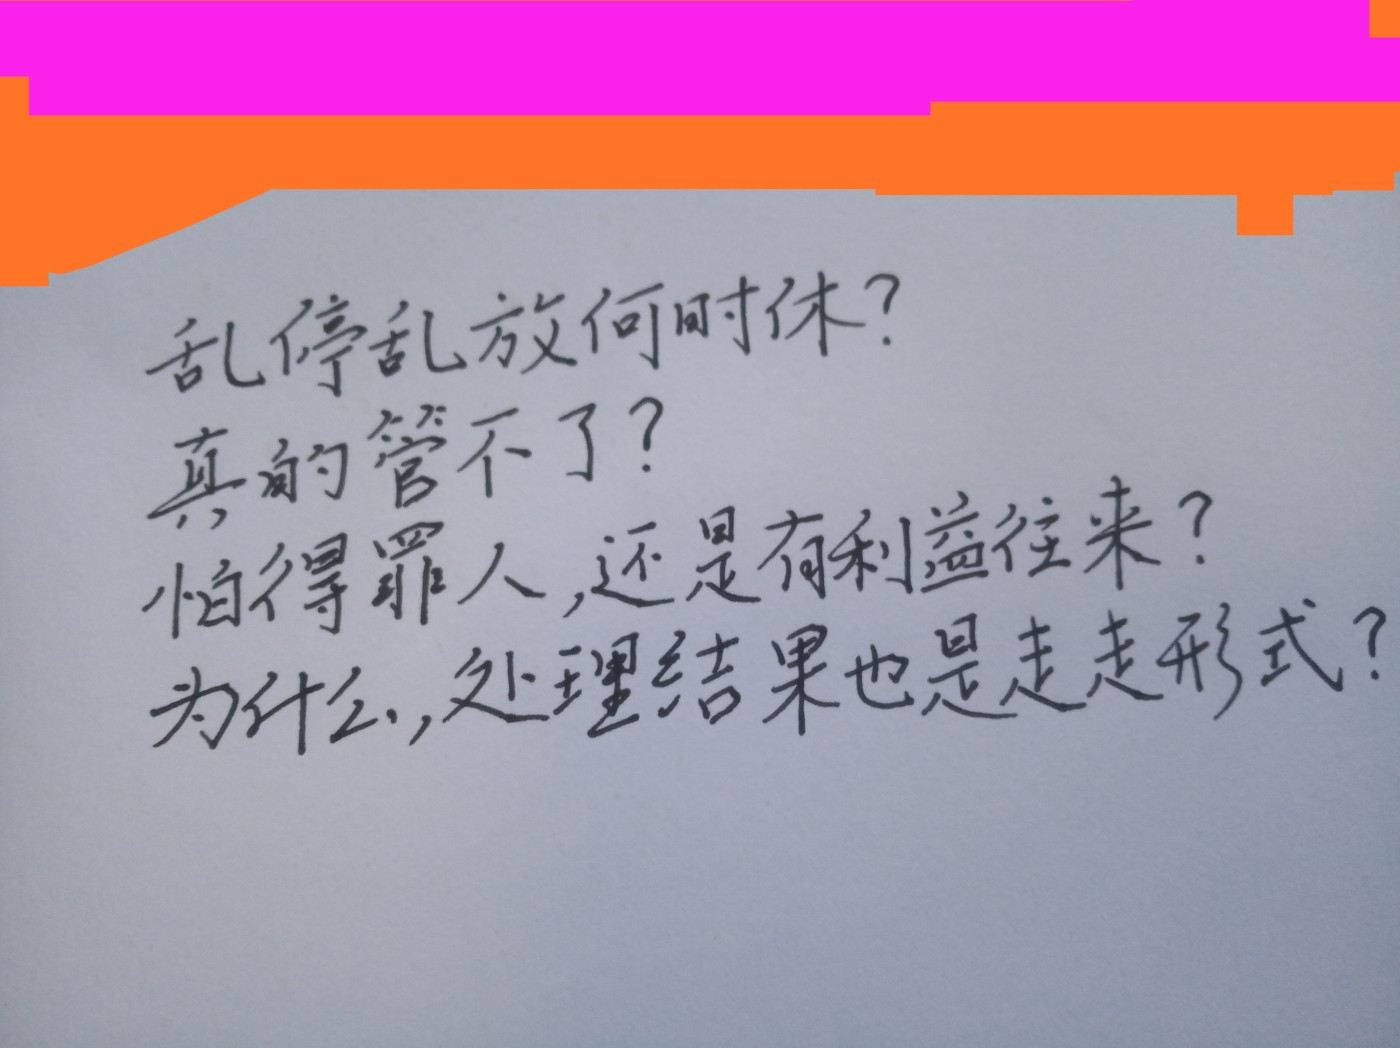 乱停乱放何时休?
真的管不了?
怕得罪人,还是有利益往来?
为什么,处理结果也是走走形式?